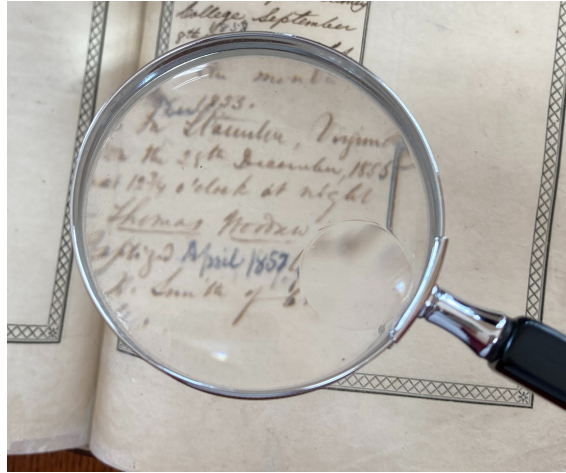 College September
8th 1853
the month
1833.
In Staunton, Virginia
on the 28th December, 1855
at 12¾ o'clock at night
Thomas Woodrow
Baptized April 1857 by
Smith of